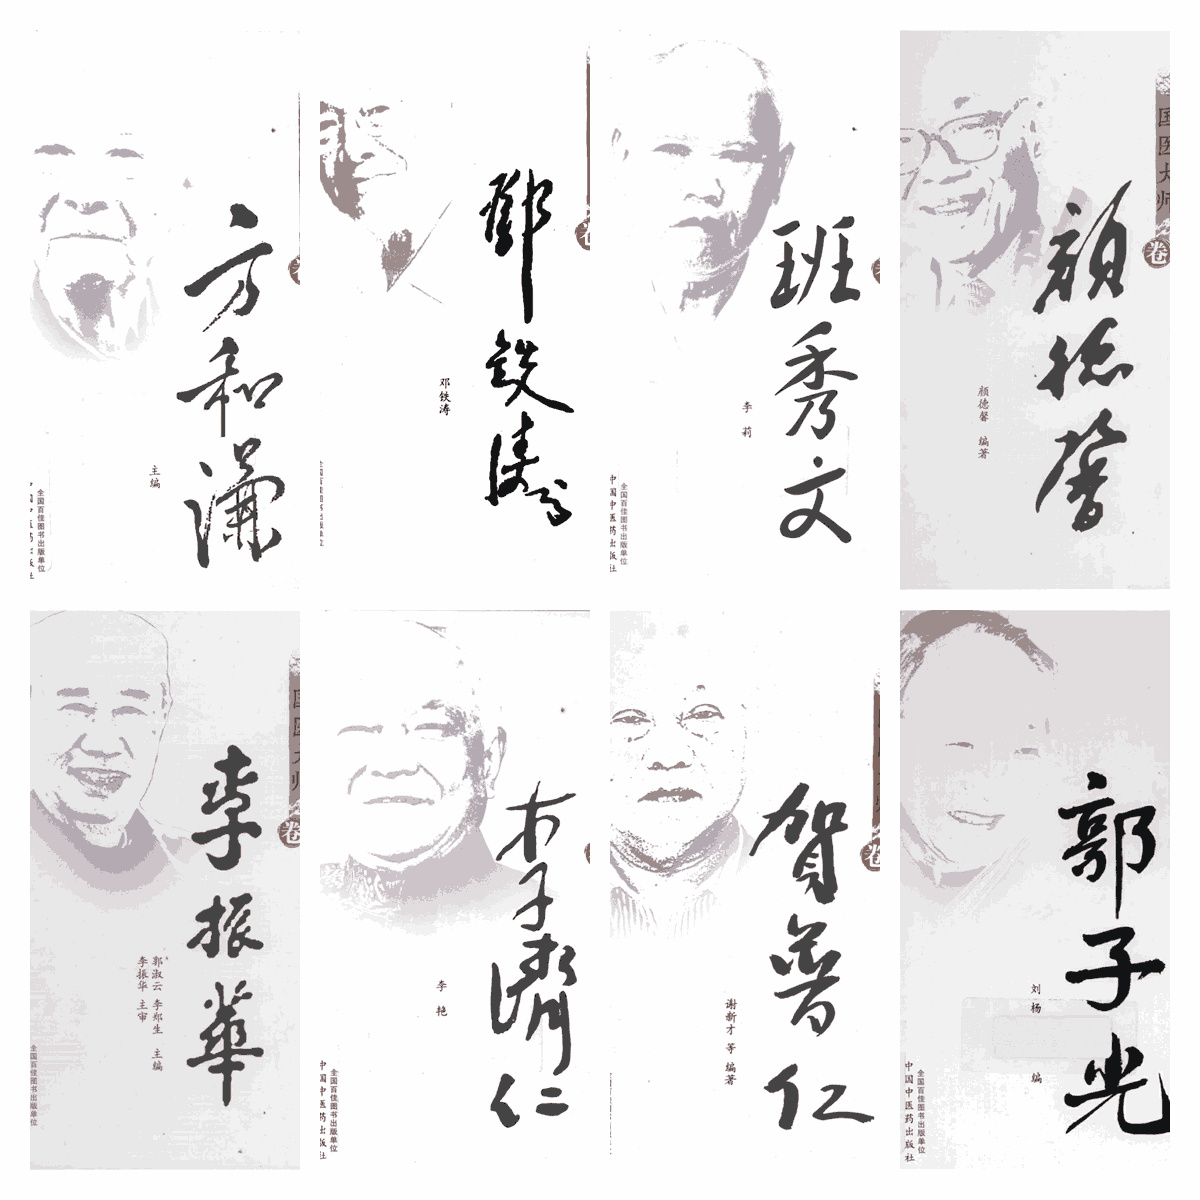 方和谦
主编
全国百佳图书出版单位
鄧铁涛
邓铁涛
全国百佳图书出版单位
班秀文
李莉
全国百佳图书出版单位
中国中医药出版社
国医大师
卷
颜德馨
颜德馨 编著
卷
李振華
郭淑云 李郑生 主编
李振华 主审
全国百佳图书出版单位
李濟仁
李艳
全国百佳图书出版单位
中国中医药出版社
卷
賀普仁
谢新才 等 编著
郭子光
刘杨 编
全国百佳图书出版单位
中国中医药出版社